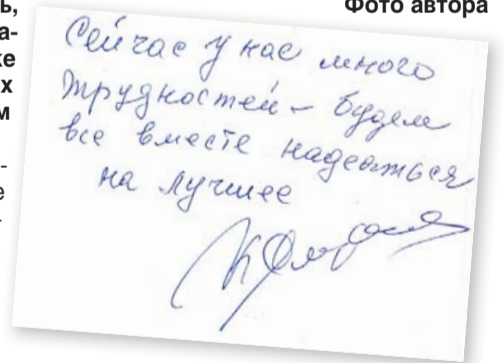 ь,
Фото автора
а-
ке
х
м
-
е
-
Сейчас у нас много
трудностей – будем
все вместе надеяться
на лучшее